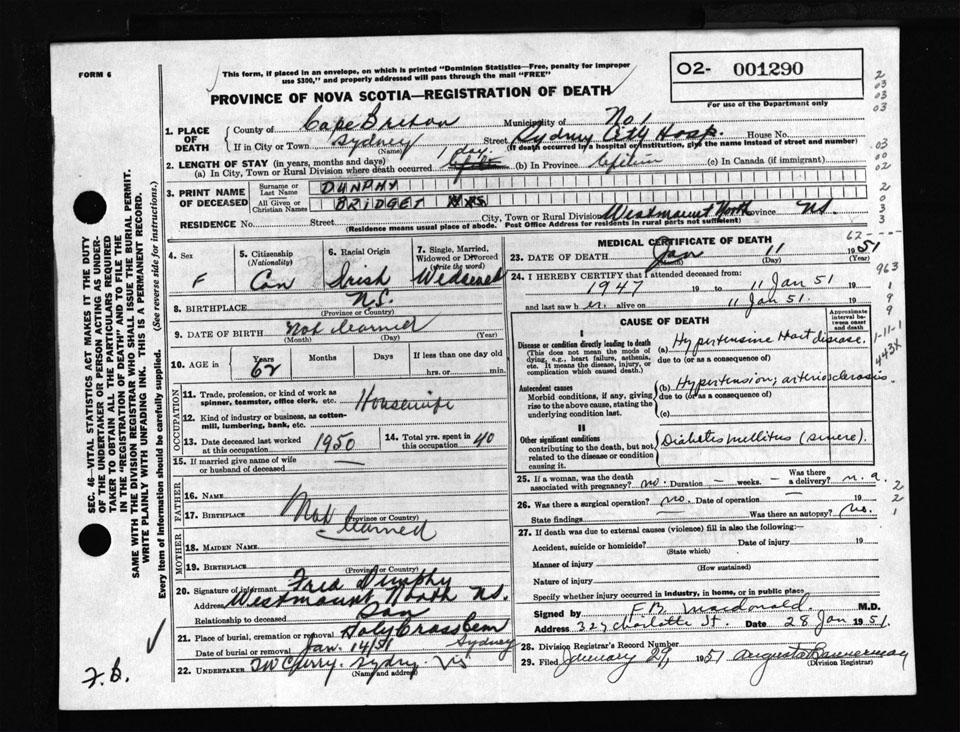 FORM 6
This form, if placed in an envelope, on which is printed "Dominion Statistics—Free, penalty for improper
use $300," and properly addressed will pass through the mail "FREE"
O2- 001290
For use of the Department only
PROVINCE OF NOVA SCOTIA—REGISTRATION OF DEATH
1. PLACE OF DEATH County of Cape Breton Municipality of No 1
If in City or Town Sydney (Name) Street Sydney City Hosp. House No.
(If death occurred by a hospital or institution, give the name instead of street and number)
2. LENGTH OF STAY (in years, months and days) 1 day
(a) In City, Town or Rural Division where death occurred (b) In Province Lifetime (c) In Canada (if immigrant)
3. PRINT NAME OF DECEASED Surname or Last Name DUNPHY
All Given or Christian Names BRIDGET MRS
RESIDENCE No. Street City, Town or Rural Division Westmount North Province NS.
(Residence means usual place of abode. Post Office Address for residents in rural parts not sufficient)
4. Sex F
5. Citizenship (Nationality) Can
6. Racial Origin Irish
7. Single, Married, Widowed or Divorced (Write the word) Widowed
8. BIRTHPLACE N.S. (Province or Country)
9. DATE OF BIRTH Not learned (Month) (Day) (Year)
10. AGE in Years 62 Months Days If less than one day old hrs. or min.
OCCUPATION
11. Trade, profession, or kind of work as spinner, teamster, office clerk, etc. Housewife
12. Kind of industry or business, as cotton-mill, lumbering, bank, etc.
13. Date deceased last worked at this occupation 1950
14. Total yrs. spent in this occupation 40
15. If married give name of wife or husband of deceased —
FATHER
16. NAME
17. BIRTHPLACE Not learned (Province or Country)
MOTHER
18. MAIDEN NAME
19. BIRTHPLACE (Province or Country)
20. Signature of informant Fred Dunphy
Address Westmount North NS.
Relationship to deceased Son
21. Place of burial, cremation or removal Holy Cross Cem
Date of burial or removal Jan. 14/51 Sydney
22. UNDERTAKER Sydney (Name and address)
MEDICAL CERTIFICATE OF DEATH
23. DATE OF DEATH Jan 11 1951 (Month) (Day) (Year)
24. I HEREBY CERTIFY that I attended deceased from:
1947 19 to 11 Jan 51 19
and last saw her alive on 11 Jan 51. 19
CAUSE OF DEATH
Approximate interval between onset and death
I
Disease or condition directly leading to death
(This does not mean the mode of dying, e.g., heart failure, asthenia, etc. It means the disease, injury, or complication which caused death.)
(a) Hypertensive Heart disease.
due to (or as a consequence of)
Antecedent causes
Morbid conditions, if any, giving rise to the above cause, stating the underlying condition last.
(b) Hypertension; arteriosclerosis.
due to (or as a consequence of)
(c)
II
Other significant conditions
contributing to the death, but not related to the disease or condition causing it.
Diabetes mellitus (severe).
25. If a woman, was the death associated with pregnancy? no. Duration — weeks. — Was there a delivery? n.a
26. Was there a surgical operation? no. Date of operation — 19
State findings — Was there an autopsy? No.
27. If death was due to external causes (violence) fill in also the following:—
Accident, suicide or homicide? (State which) Date of injury 19
Manner of injury (How sustained)
Nature of injury
Specify whether injury occurred in industry, in home, or in public place,
Signed by F.B. Macdonald. M.D.
Address 324 Charlotte St. Date 28 Jan 1951.
28. Division Registrar's Record Number
29. Filed January 29, 1951 Augusta Bannerman (Division Registrar)
SEC. 46—VITAL STATISTICS ACT MAKES IT THE DUTY
OF THE UNDERTAKER OR PERSON ACTING AS UNDER-
TAKER TO OBTAIN ALL THE PARTICULARS REQUIRED
IN THE "REGISTRATION OF DEATH" AND TO FILE THE
SAME WITH THE DIVISION REGISTRAR WHO SHALL ISSUE THE BURIAL PERMIT.
WRITE PLAINLY WITH UNFADING INK. THIS IS A PERMANENT RECORD.
Every item of information should be carefully supplied. (See reverse side for instructions.)
F.B.
2
03
03
03
.03
00
02
2
0
3
3
62-
963
1
9
9
1-11-1
443X
2
2
1